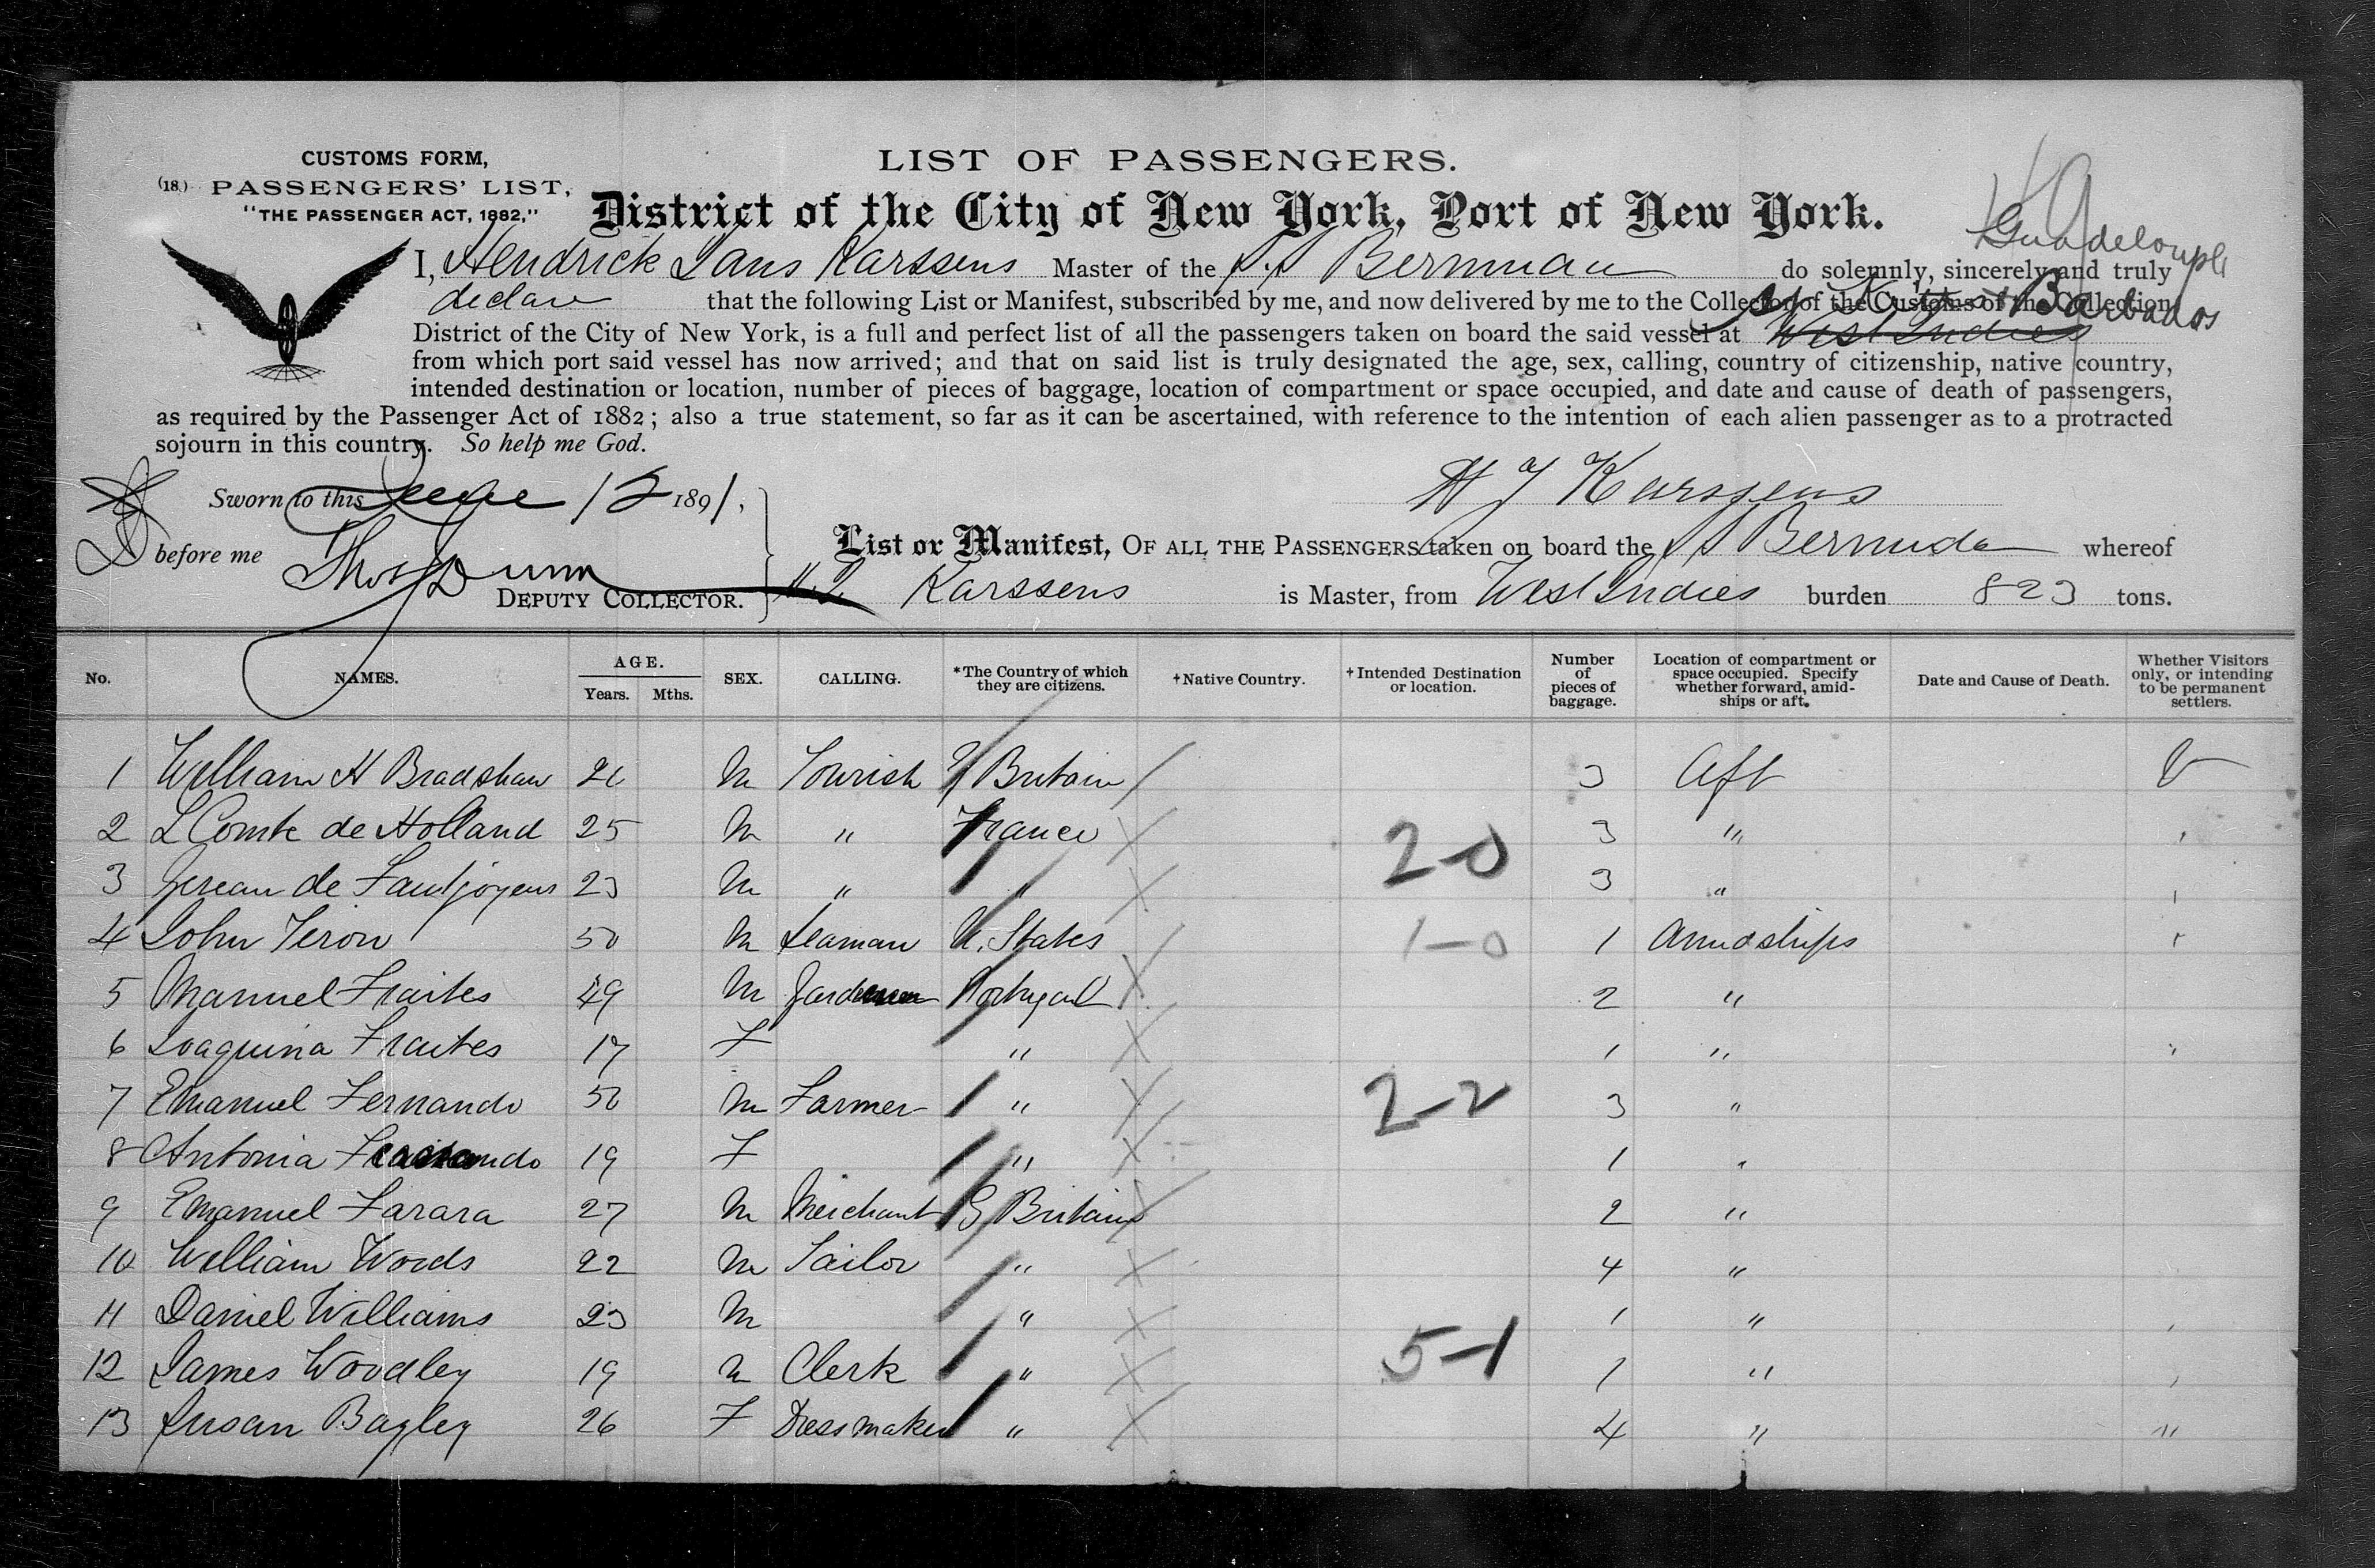 CUSTOMS FORM,
(18.) PASSENGERS' LIST,
"THE PASSENGER ACT, 1882,"
LIST OF PASSENGERS.
District of the City of New York, Port of New York.
Guadeloupe
I, Hendrick Jans Karssens Master of the SS Bermuda do solemnly, sincerely and truly
declare that the following List or Manifest, subscribed by me, and now delivered by me to the Collector of the Customs of the Collection
St Kitts & Barbados
District of the City of New York, is a full and perfect list of all the passengers taken on board the said vessel at West Indies
from which port said vessel has now arrived; and that on said list is truly designated the age, sex, calling, country of citizenship, native country,
intended destination or location, number of pieces of baggage, location of compartment or space occupied, and date and cause of death of passengers,
as required by the Passenger Act of 1882; also a true statement, so far as it can be ascertained, with reference to the intention of each alien passenger as to a protracted
sojourn in this country. So help me God.
Sworn to this June 12 1891, H J Karssens
before me Thos Dunn
DEPUTY COLLECTOR.
List or Manifest, OF ALL THE PASSENGERS taken on board the SS Bermuda whereof
H. J. Karssens is Master, from West Indies burden 823 tons.
No. NAMES. AGE. Years. Mths. SEX. CALLING. *The Country of which they are citizens. †Native Country. †Intended Destination or location. Number of pieces of baggage. Location of compartment or space occupied. Specify whether forward, amidships or aft. Date and Cause of Death. Whether Visitors only, or intending to be permanent settlers.
1 William H Bradshaw 26 M Tourist G Britain 3 Aft V
2 L Comte de Holland 25 M " France 2-0 3 "
3 de 23 M " " 3 "
4 John 50 M Seaman U. States 1-0 1 Amidships
5 Manuel Fraites 49 M Portugal 2 "
6 Joaquina Fraites 17 F " 1 "
7 Emanuel Fernando 50 M Farmer " 2-2 3 "
8 Antonia 19 F " 1 "
9 Emanuel Farara 27 M Merchant G Britain 2 "
10 William Woods 22 M Tailor " 4 "
11 Daniel Williams 23 M " 1 "
12 James Woodley 19 M Clerk " 5-1 1 "
13 Susan Bagley 26 F Dressmaker " 4 " "